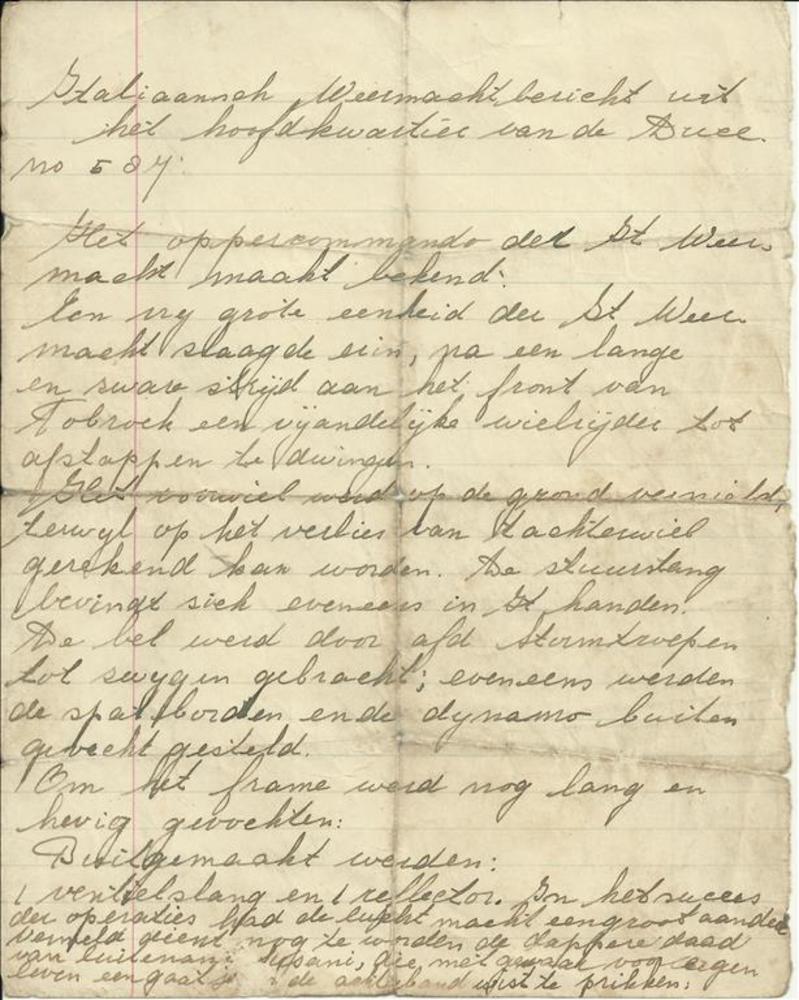 Italiaansch Weermachtbericht uit
het hoofdkwartier van de Duce.
no 587.
Het oppercommando der It Weer-
macht maakt bekend:
Een vry grote eenheid der It Weer-
macht slaagde erin, na een lange
en sware strijd aan het front van
Tobroek een vijandelijke wielrijder tot
afstappen te dwingen.
Het voorwiel werd op de grond vernield,
terwyl op het verlies van t achterwiel
gerekend kan worden. De stuurstang
bevindt sich eveneens in It handen.
De bel werd door afd stormtroepen
tot swygen gebracht; eveneens werden
de spatborden en de dynamo buiten
gevecht gesteld.
Om het frame werd nog lang en
hevig gevochten:
Buitgemaakt werden:
1 ventielslang en 1 reflector. In het succes
der operaties had de lucht macht een groot aandeel
Vermeld dient nog te worden de dappere daad
van luitenant, die, met gevaar voor eigen
leven een gaatje de achterband wist te prikken: